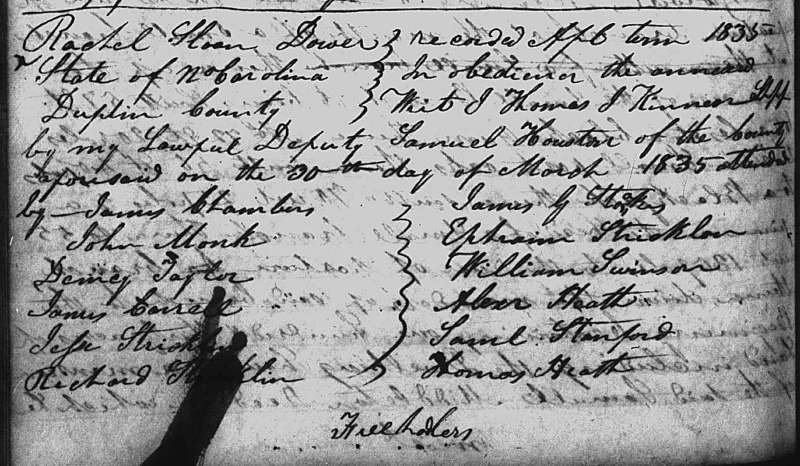 Rachel Sloan Dower } recorded Apl term 1835
State of No Carolina } In obedience the annexed
Duplin County } Writ I Thomas J Kinnear Shff
by my Lawful Deputy Samuel Houston of the County
aforesaid on the 30th day of March 1835 attended
by James Chambers } James G Stokes
John Monk Ephraim Stricklan
Demcy Taylor William Swinson
James Carrell Alexr Heath
Jesse Samll Stanford
Richard Thomas Heath
Freeholders